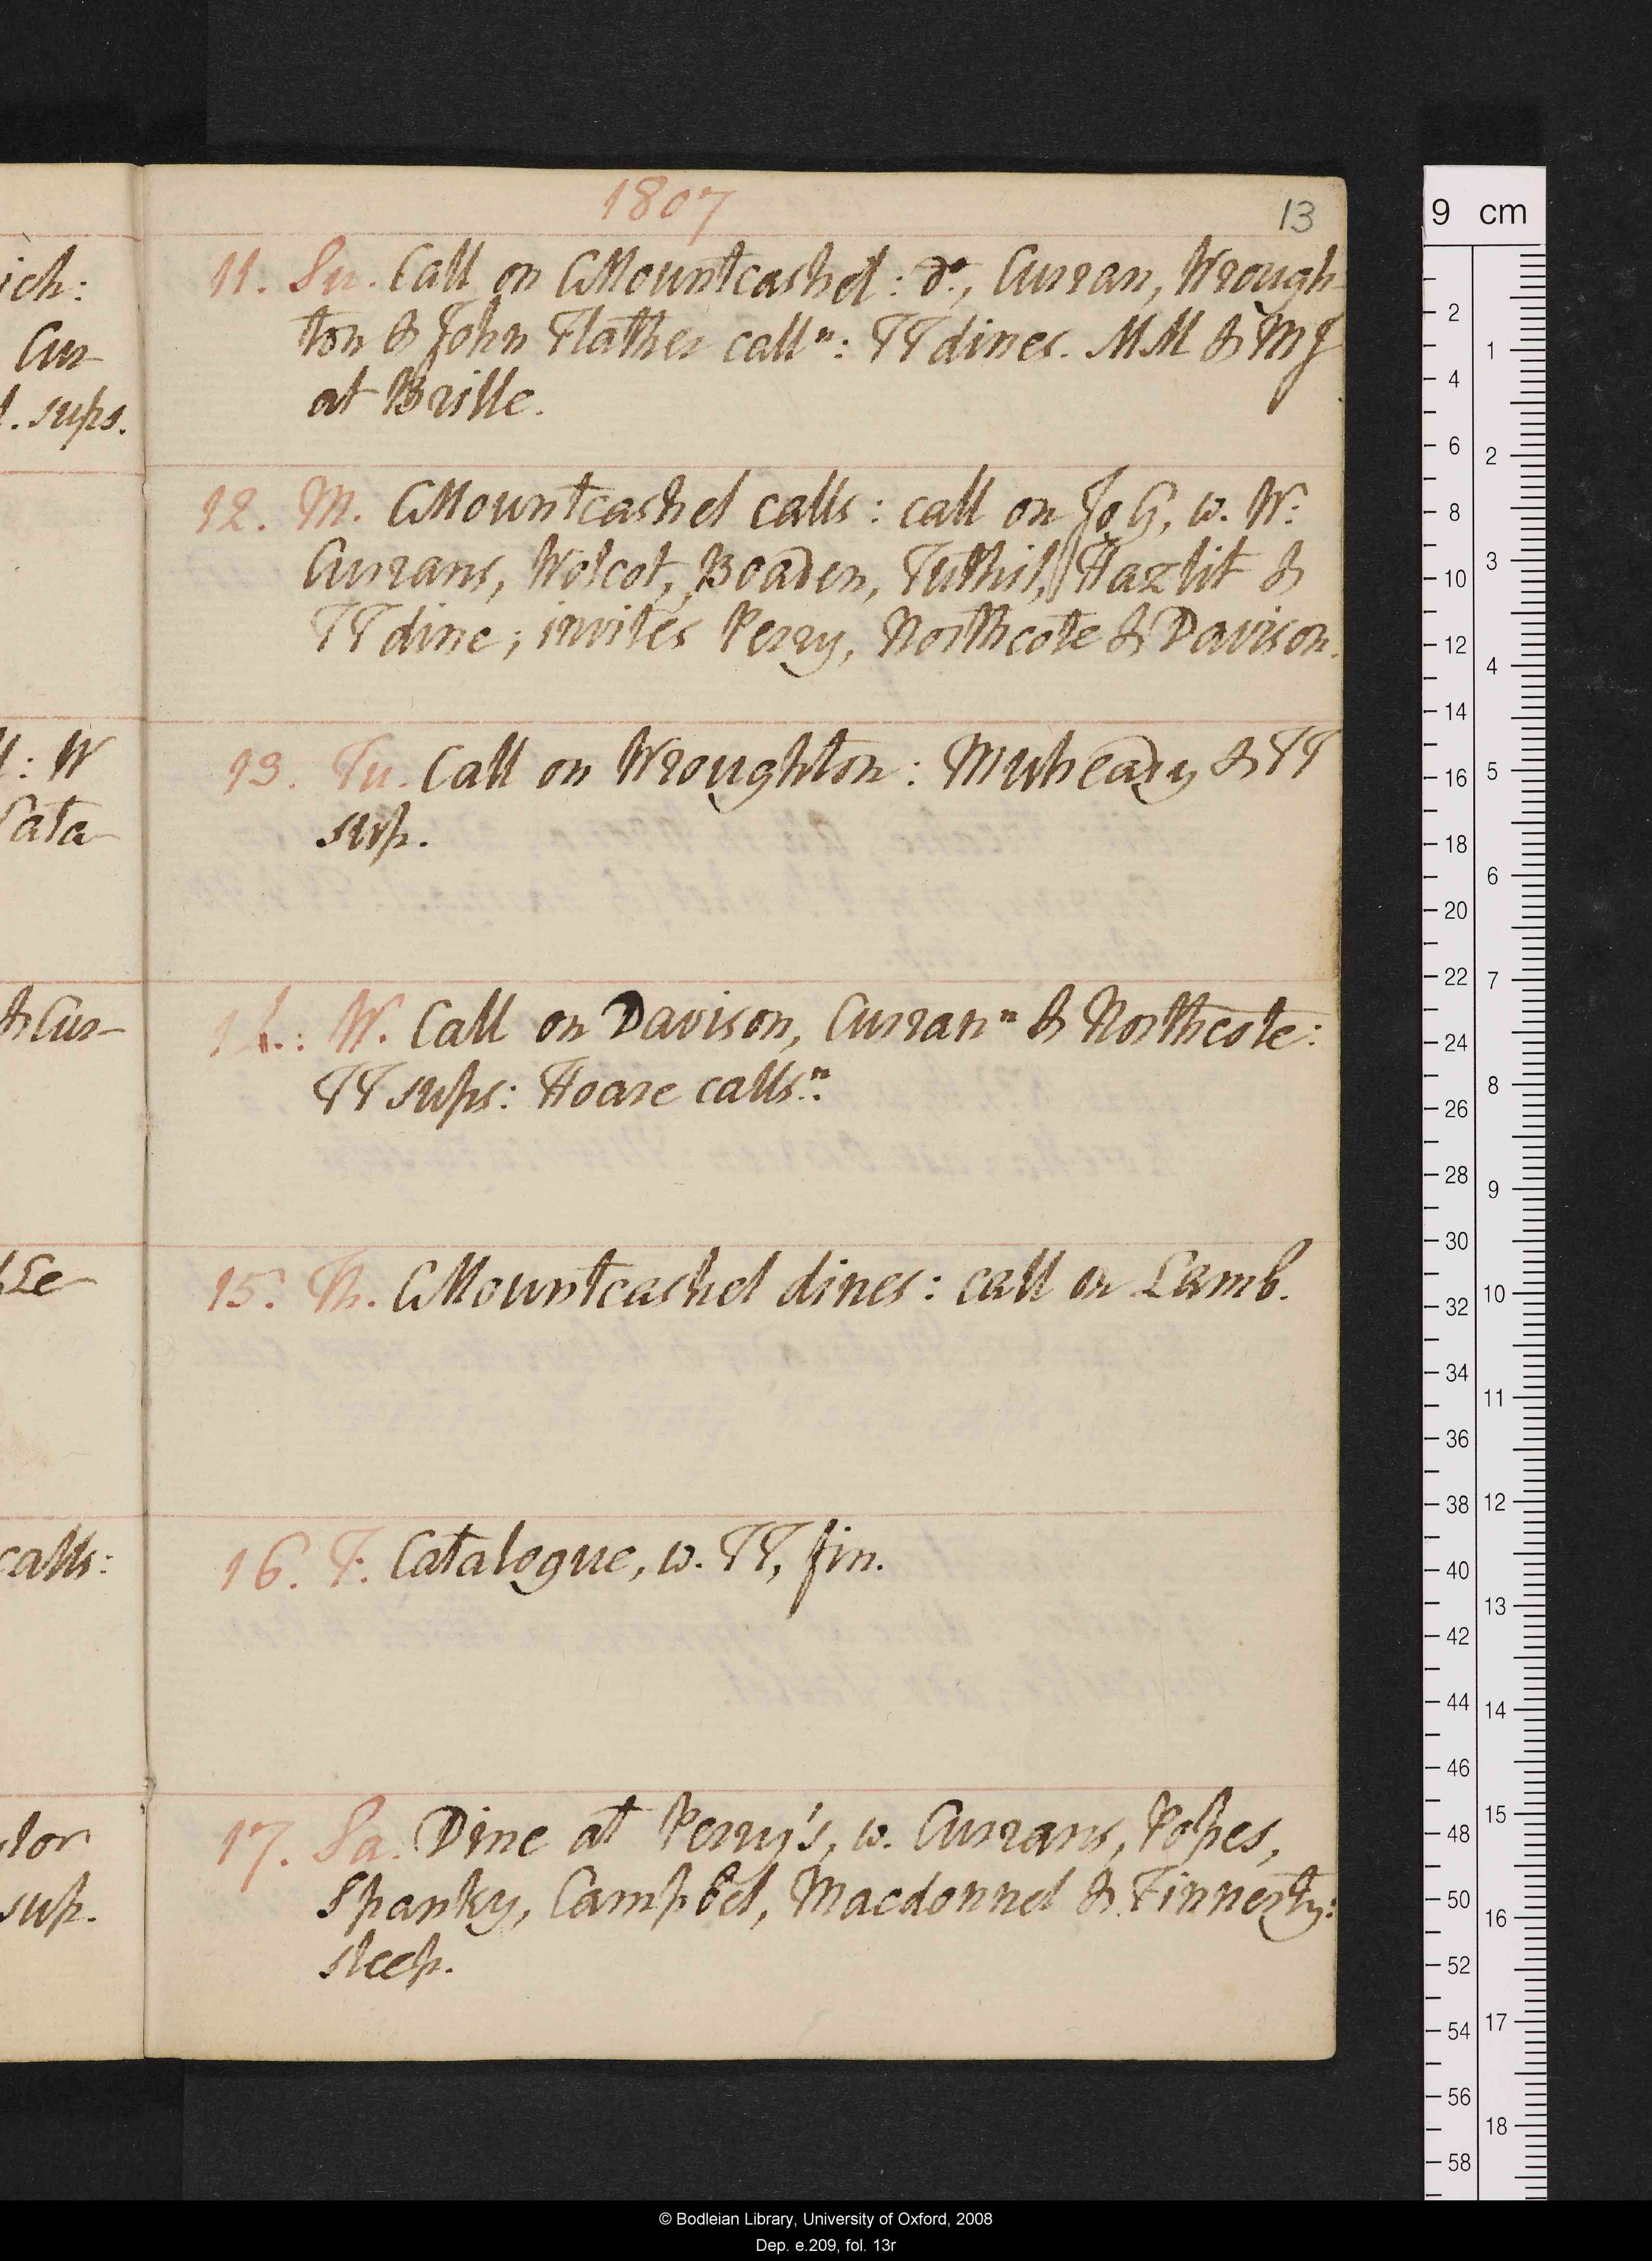 1807
13
11. Su. Call on CMountcashel: do, Curran, Wrough-
ton & John Flather calln: TT dines. MM & MJ
at Brille.
12. M. CMountcashel calls: call on Jo G, w. W:
Currans, Wolcot, Boaden, Tuthil, Hazlit &
TT dine; invités Perry, Northcote & Davison.
13. Tu. Call on Wroughton: Mulready & TT
sup.
14.: W. Call on Davison, Currann & Northcote:
TT sups: Hoare callsn.
15. Th. CMountcashel dines: call on Lamb.
16. F. Catalogue, w. TT, fin.
17. Sa. Dine at Perry's, w. Currans, Popes,
Spanky, Campbel, Macdonnel & Finnerty:
sleep.
ich:
Cur-
. sups.
: W
Cata-
& Cur-
Le-
calls:
lor
sup.
9 cm
2
4
6
8
10
12
14
16
18
20
22
24
26
28
30
32
34
36
38
40
42
44
46
48
50
52
54
56
58
1
2
3
4
5
6
7
8
9
10
11
12
13
14
15
16
17
18
© Bodleian Library, University of Oxford, 2008
Dep. e.209, fol. 13r